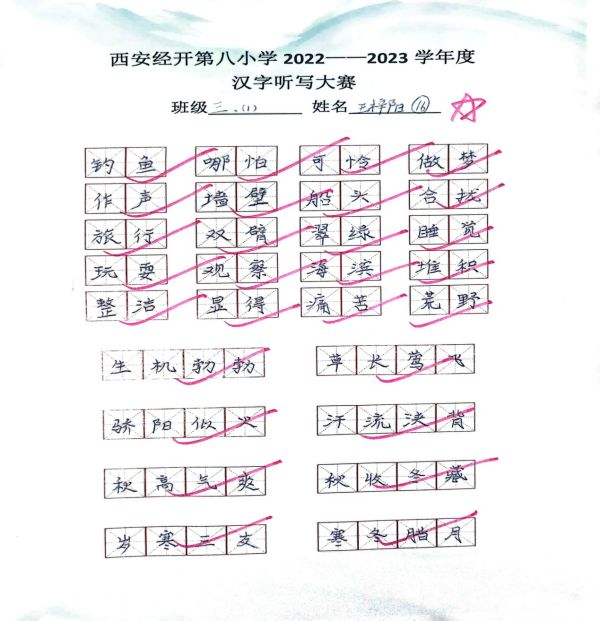 西安经开第八小学 2022——2023 学年度
汉字听写大赛
班级 三、(1) 姓名 王梓阳 16
钓鱼 哪怕 可怜 做梦
作声 墙壁 船头 合拢
旅行 双臂 翠绿 睡觉
玩耍 观察 海滨 堆积
整洁 显得 痛苦 荒野
生机勃勃 草长莺飞
骄阳似火 汗流浃背
秋高气爽 秋收冬藏
岁寒三友 寒冬腊月